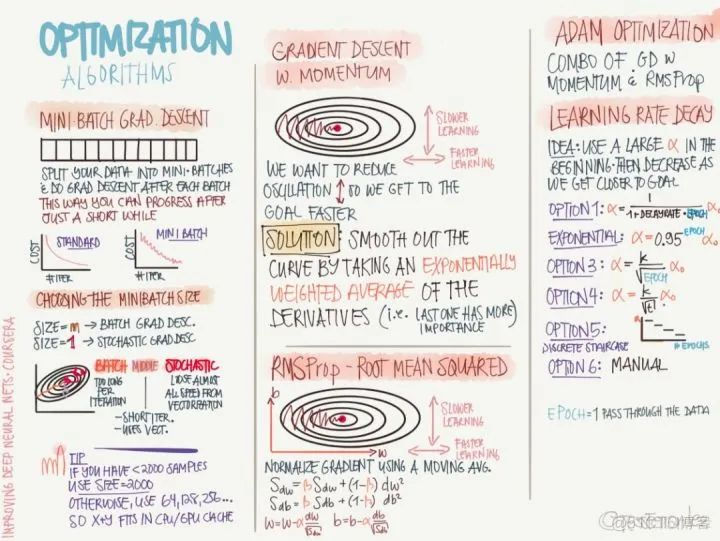 OPTIMIZATION
ALGORITHMS
MINI-BATCH GRAD. DESCENT
SPLIT YOUR DATA INTO MINI-BATCHES
& DO GRAD DESCENT AFTER EACH BATCH
THIS WAY YOU CAN PROGRESS AFTER
JUST A SHORT WHILE
COST
STANDARD
# ITER
COST
MINI BATCH
# ITER
CHOOSING THE MINIBATCH SIZE
SIZE=m → BATCH GRAD DESC.
SIZE=1 → STOCHASTIC GRAD DESC
BATCH
TOO LONG
PER
ITERATION
MIDDLE
-SHORT ITER.
-USES VECT.
STOCHASTIC
LOSE ALMOST
ALL SPEED FROM
VECTORIZATION
TIP
IF YOU HAVE <2000 SAMPLES
USE SIZE=2000
OTHERWISE, USE 64,128,256...
SO X+Y FITS IN CPU/GPU CACHE
IMPROVING DEEP NEURAL NETS · COURSERA
GRADIENT DESCENT
W. MOMENTUM
SLOWER
LEARNING
FASTER
LEARNING
WE WANT TO REDUCE
OSCILLATION ↕ SO WE GET TO THE
GOAL FASTER
SOLUTION: SMOOTH OUT THE
CURVE BY TAKING AN EXPONENTIALLY
WEIGHTED AVERAGE OF THE
DERIVATIVES (i.e. LAST ONE HAS MORE
IMPORTANCE)
RMSProp - ROOT MEAN SQUARED
b
w
SLOWER
LEARNING
FASTER
LEARNING
NORMALIZE GRADIENT USING A MOVING AVG.
Sdw = β Sdw + (1-β) dw²
Sdb = β Sdb + (1-β) db²
w=w-α dw/√Sdw b=b-α db/√Sdb
ADAM OPTIMIZATION
COMBO OF GD W
MOMENTUM & RMSProp
LEARNING RATE DECAY
IDEA: USE A LARGE α IN THE
BEGINNING. THEN DECREASE AS
WE GET CLOSER TO GOAL
OPTION 1: α = 1/(1+DECAYRATE·EPOCH) α₀
EXPONENTIAL: α = 0.95^EPOCH α₀
OPTION 3: α = k/√EPOCH α₀
OPTION 4: α = k/√t α₀
OPTION 5:
DISCRETE STAIRCASE
α
# EPOCHS
OPTION 6: MANUAL
EPOCH = 1 PASS THROUGH THE DATA